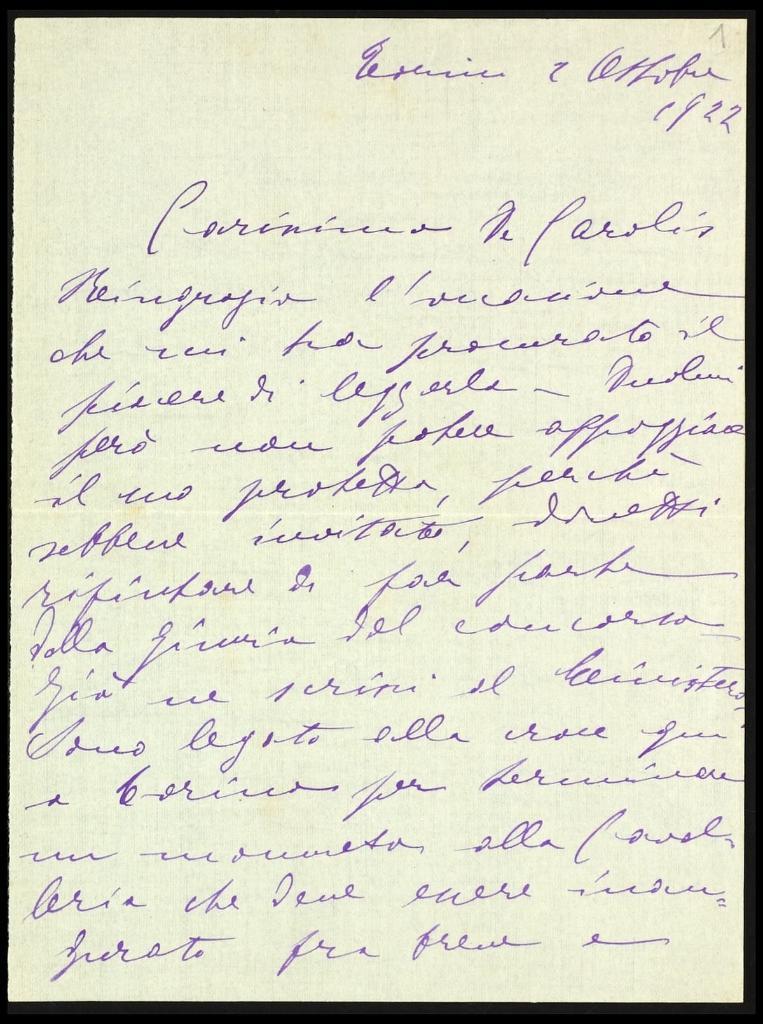 1
Torino 2 Ottobre
1922
Carissimo De Carolis
Ringrazio l'occasione
che mi ha procurato il
piacere di leggerla – Duolmi
però non potere appoggiare
il suo protetto, perchè
sebbene invitato, dovetti
rifiutare di far parte
della Giuria del concorso
Già ne scrissi al Ministero.
Sono legato alla croce qui
a Torino per terminare
un monumeto alla Caval-
leria che deve essere inau=
gurato fra breve e